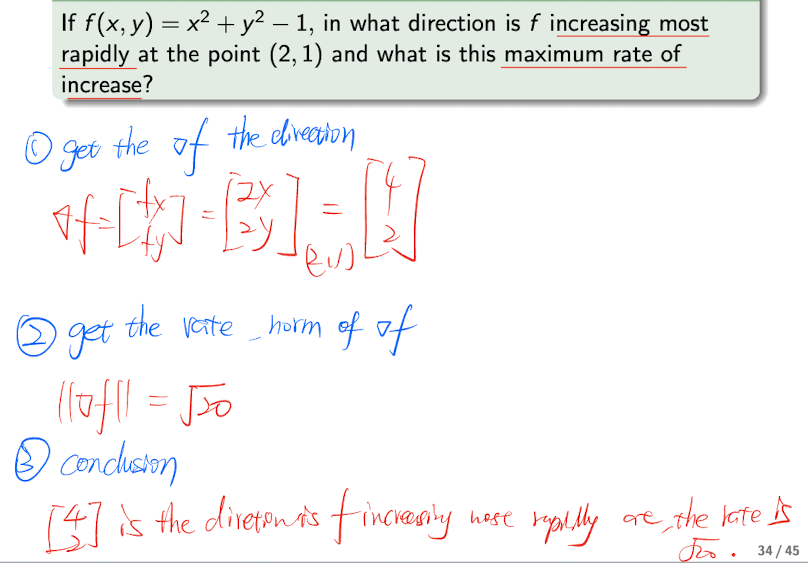 If f(x, y) = x² + y² − 1, in what direction is f increasing most
rapidly at the point (2, 1) and what is this maximum rate of
increase?
① get the ∇f the direction
∇f = [fx fy] = [2x 2y] (2,1) = [4 2]
② get the rate _ norm of ∇f
||∇f|| = √20
③ conclusion
[4 2] is the diretion is f increasing most rapidly are, the rate is
√20 .
34 / 45